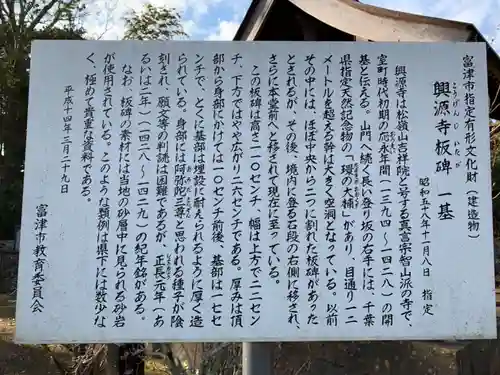 富津市指定有形文化財（建造物）
こうげんじ　いたび
興源寺板碑　一基
昭和五十八年十一月八日　指定
興源寺は松嶺山吉祥院と号する真言宗智山派の寺で、
室町時代初期の応永年間（一三九四～一四二八）の開
基と伝える。山門へ続く長い登り坂の右手には、千葉
県指定天然記念物の「環の大楠」があり、目通り一二
メートルを超える幹は大きく空洞となっている。以前
その中には、ほぼ中央から二つに割れた板碑があった
とされるが、その後、境内に登る石段の右側に移され、
さらに本堂前へと移されて現在に至っている。
この板碑は高さ一一〇センチ、幅は上方で二二セン
チ、下方ではやや広がり二六センチである。厚みは頂
部から身部にかけては一〇センチ前後、基部は一七セ
ンチで、とくに基部は埋設に耐えられるように厚く造
られている。身部には阿弥陀三尊と思われる種子が陰
刻され、願文等の判読は困難であるが、正長元年（あ
るいは二年）（一四二八～一四二九）の紀年銘がある。
なお、板碑の素材には当地の砂層中に見られる砂岩
が使用されている。このような類例は県下には数少な
く、極めて貴重な資料である。
平成十四年三月二十九日
富津市教育委員会